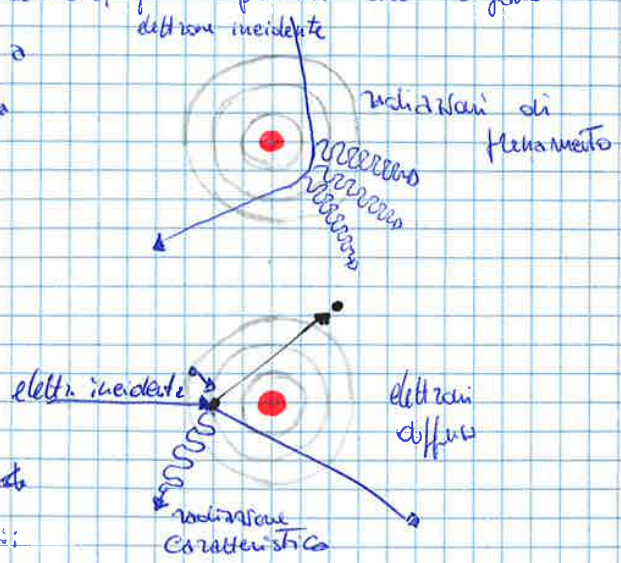 elettrone incidente
radiazioni di
frenamento
elettr. incidente
elettroni
diffusi
radiazione
caratteristica